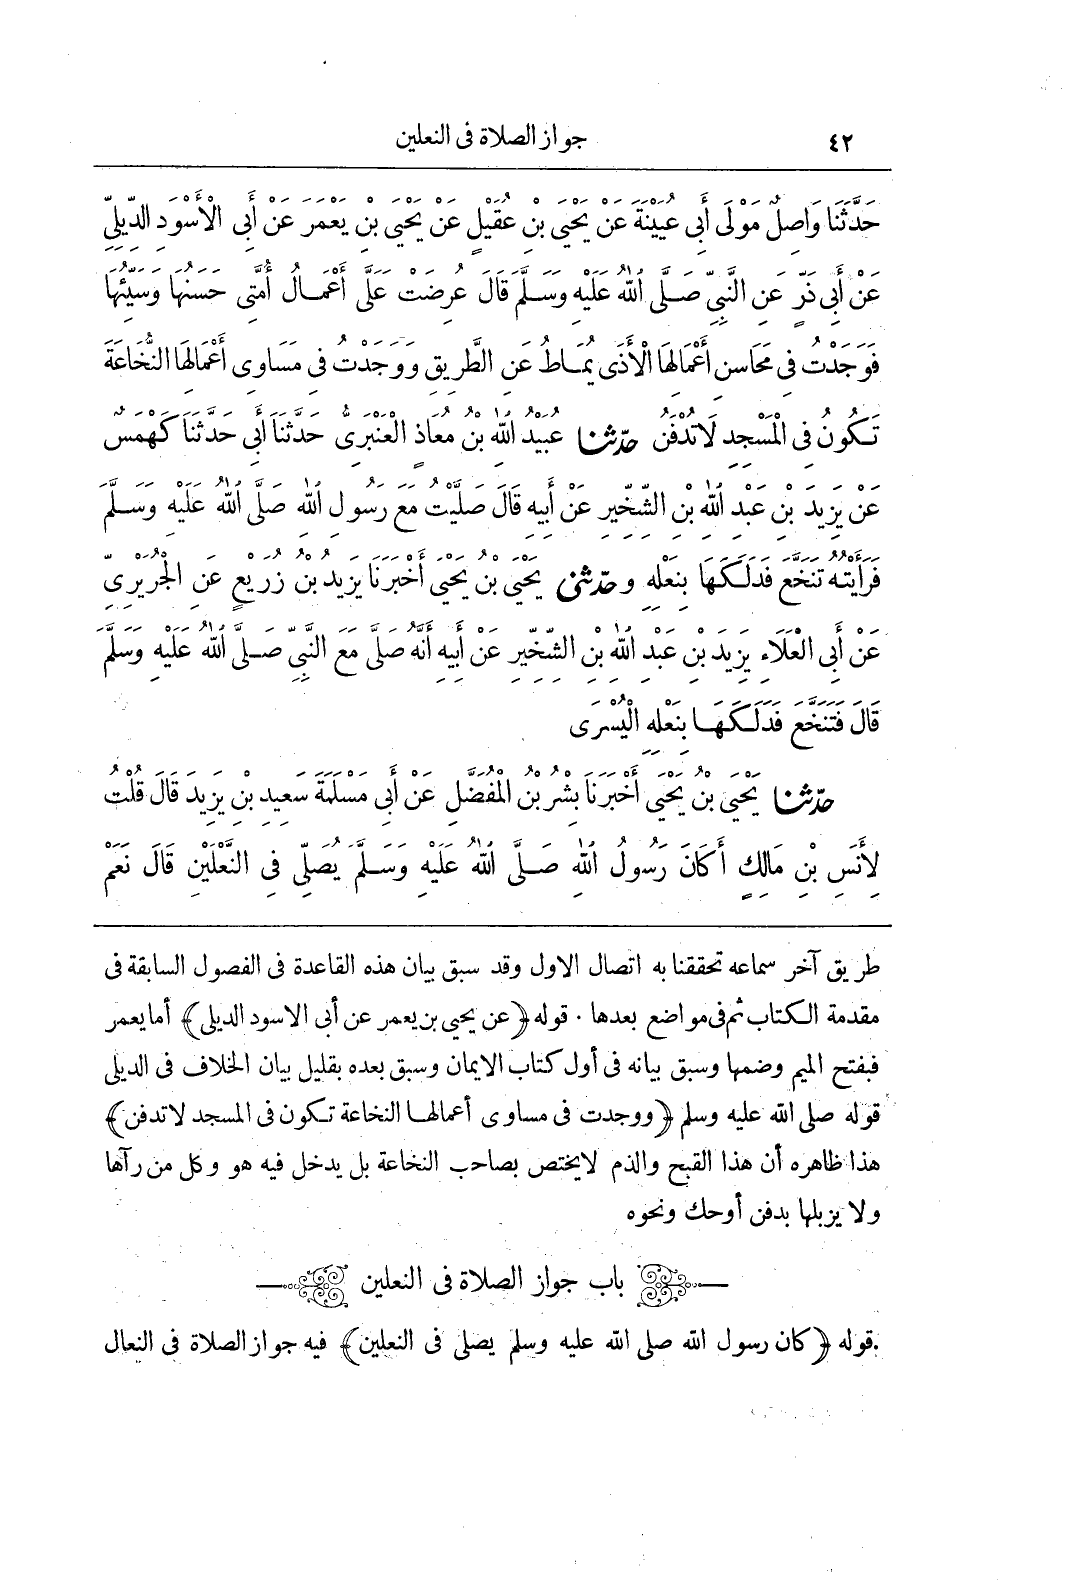 ٤٢ جواز الصلاة فى النعلين
حَدَّثَنَا وَاصِلٌ مَوْلَى أَبِى عُيَيْنَةَ عَنْ يَحْيَى بْنِ عُقَيْلٍ عَنْ يَحْيَى بْنِ يَعْمَرَ عَنْ أَبِى الْأَسْوَدِ الدِّيلِىِّ
عَنْ أَبِى ذَرٍّ عَنِ النَّبِىِّ صَلَّى اللهُ عَلَيْهِ وَسَلَّمَ قَالَ عُرِضَتْ عَلَىَّ أَعْمَالُ أُمَّتِى حَسَنُهَا وَسَيِّئُهَا
فَوَجَدْتُ فِى مَحَاسِنِ أَعْمَالِهَا الْأَذَى يُمَاطُ عَنِ الطَّرِيقِ وَوَجَدْتُ فِى مَسَاوِى أَعْمَالِهَا النُّخَاعَةَ
تَكُونُ فِى الْمَسْجِدِ لَا تُدْفَنُ حدّثنا عُبَيْدُ اللهِ بْنُ مُعَاذٍ الْعَنْبَرِىُّ حَدَّثَنَا أَبِى حَدَّثَنَا كَهْمَسٌ
عَنْ يَزِيدَ بْنِ عَبْدِ اللهِ بْنِ الشِّخِّيرِ عَنْ أَبِيهِ قَالَ صَلَّيْتُ مَعَ رَسُولِ اللهِ صَلَّى اللهُ عَلَيْهِ وَسَلَّمَ
فَرَأَيْتُهُ تَنَخَّعَ فَدَلَكَهَا بِنَعْلِهِ وحدّثنى يَحْيَى بْنُ يَحْيَى أَخْبَرَنَا يَزِيدُ بْنُ زُرَيْعٍ عَنِ الْجُرَيْرِىِّ
عَنْ أَبِى الْعَلَاءِ يَزِيدَ بْنِ عَبْدِ اللهِ بْنِ الشِّخِّيرِ عَنْ أَبِيهِ أَنَّهُ صَلَّى مَعَ النَّبِىِّ صَلَّى اللهُ عَلَيْهِ وَسَلَّمَ
قَالَ فَتَنَخَّعَ فَدَلَكَهَا بِنَعْلِهِ الْيُسْرَى
حدّثنا يَحْيَى بْنُ يَحْيَى أَخْبَرَنَا بِشْرُ بْنُ الْمُفَضَّلِ عَنْ أَبِى مَسْلَمَةَ سَعِيدِ بْنِ يَزِيدَ قَالَ قُلْتُ
لِأَنَسِ بْنِ مَالِكٍ أَكَانَ رَسُولُ اللهِ صَلَّى اللهُ عَلَيْهِ وَسَلَّمَ يُصَلِّى فِى النَّعْلَيْنِ قَالَ نَعَمْ
طريق آخر سماعه تحققنا به اتصال الاول وقد سبق بيان هذه القاعدة فى الفصول السابقة فى
مقدمة الكتاب ثم فى مواضع بعدها . قوله ﴿عن يحيى بن يعمر عن أبى الاسود الديلى﴾ أما يعمر
فبفتح الميم وضمها وسبق بيانه فى أول كتاب الايمان وسبق بعده بقليل بيان الخلاف فى الديلى
قوله صلى الله عليه وسلم ﴿ووجدت فى مساوى أعمالها النخاعة تكون فى المسجد لاتدفن﴾
هذا ظاهره أن هذا القبح والذم لايختص بصاحب النخاعة بل يدخل فيه هو وكل من رآها
ولا يزيلها بدفن أوحك ونحوه
باب جواز الصلاة فى النعلين
قوله ﴿كان رسول الله صلى الله عليه وسلم يصلى فى النعلين﴾ فيه جواز الصلاة فى النعال